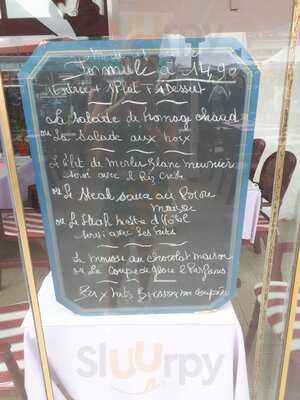 Formule à 14,90
1 Entrée + 1 Plat + 1 Dessert
La Salade de fromage chaud
ou La Salade aux noix
Le filet de merlu blanc meunier
servi avec le Riz Créole
ou Le Steak sauce au Poivre
maison
ou Le Steak maitre d'Hôtel
servi avec des frites
La mousse au chocolat maison
ou La Coupe de glace 2 Parfums
Prix nets Boisson non comprise
Sluurpy